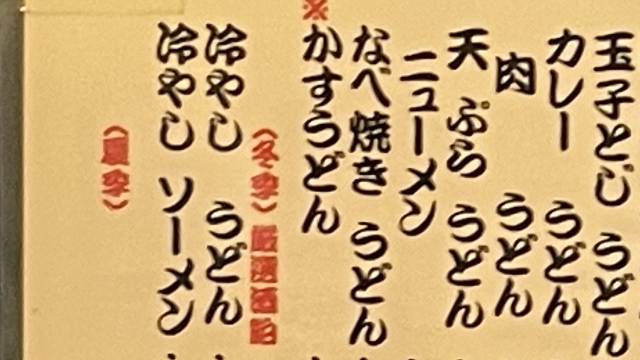 玉子とじ うどん
カレー うどん
肉 うどん
天ぷら うどん
ニューメン
なべ焼き うどん
※
かすうどん
(冬季)厳選酒粕
冷やし うどん
冷やし ソーメン
(夏季)